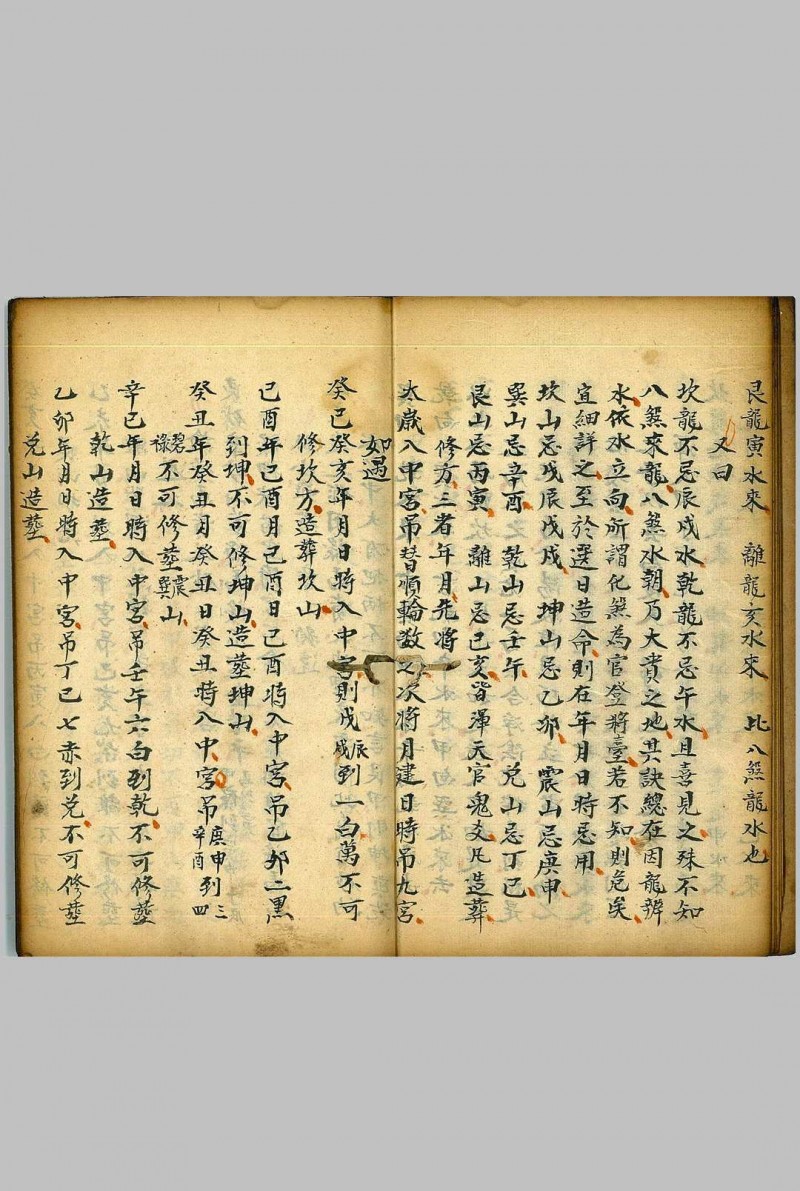 艮龍寅水來 離龍亥水來 比八煞龍水也
又曰
坎龍不忌辰戌水乾龍不忌午水且喜見之殊不知
八煞來龍八煞水朝乃大貴之地其訣總在因龍辨
水依水立向所謂化煞為官登將臺若不知則危矣
宜細詳之至於選日造命則在年月日時忌用
坎山忌戊辰戊戌 坤山忌乙卯 震山忌庚申
巽山忌辛酉 乾山忌壬午 兌山忌丁巳
艮山忌丙寅 離山忌己亥皆渾天官鬼爻凡造葬
修方三者年月先將
太歲入中宮吊替順輪數之次將月建日時吊九宮
如遇
癸巳癸亥年月日時入中宮則戊辰戊戌到一白萬不可
修坎方造葬坎山
己酉年己酉月己酉日己酉時入中宮吊乙卯二黑
到坤不可修坤山造塟坤山
癸丑年癸丑月癸丑日癸丑時入中宮吊庚申辛酉到三四
碧祿不可修塟震巽山
辛巳年月日時入中宮吊壬午六白到乾不可修塟
乾山造塟
乙卯年月日時入中宮吊丁巳七赤到兌不可修塟
兌山造塟